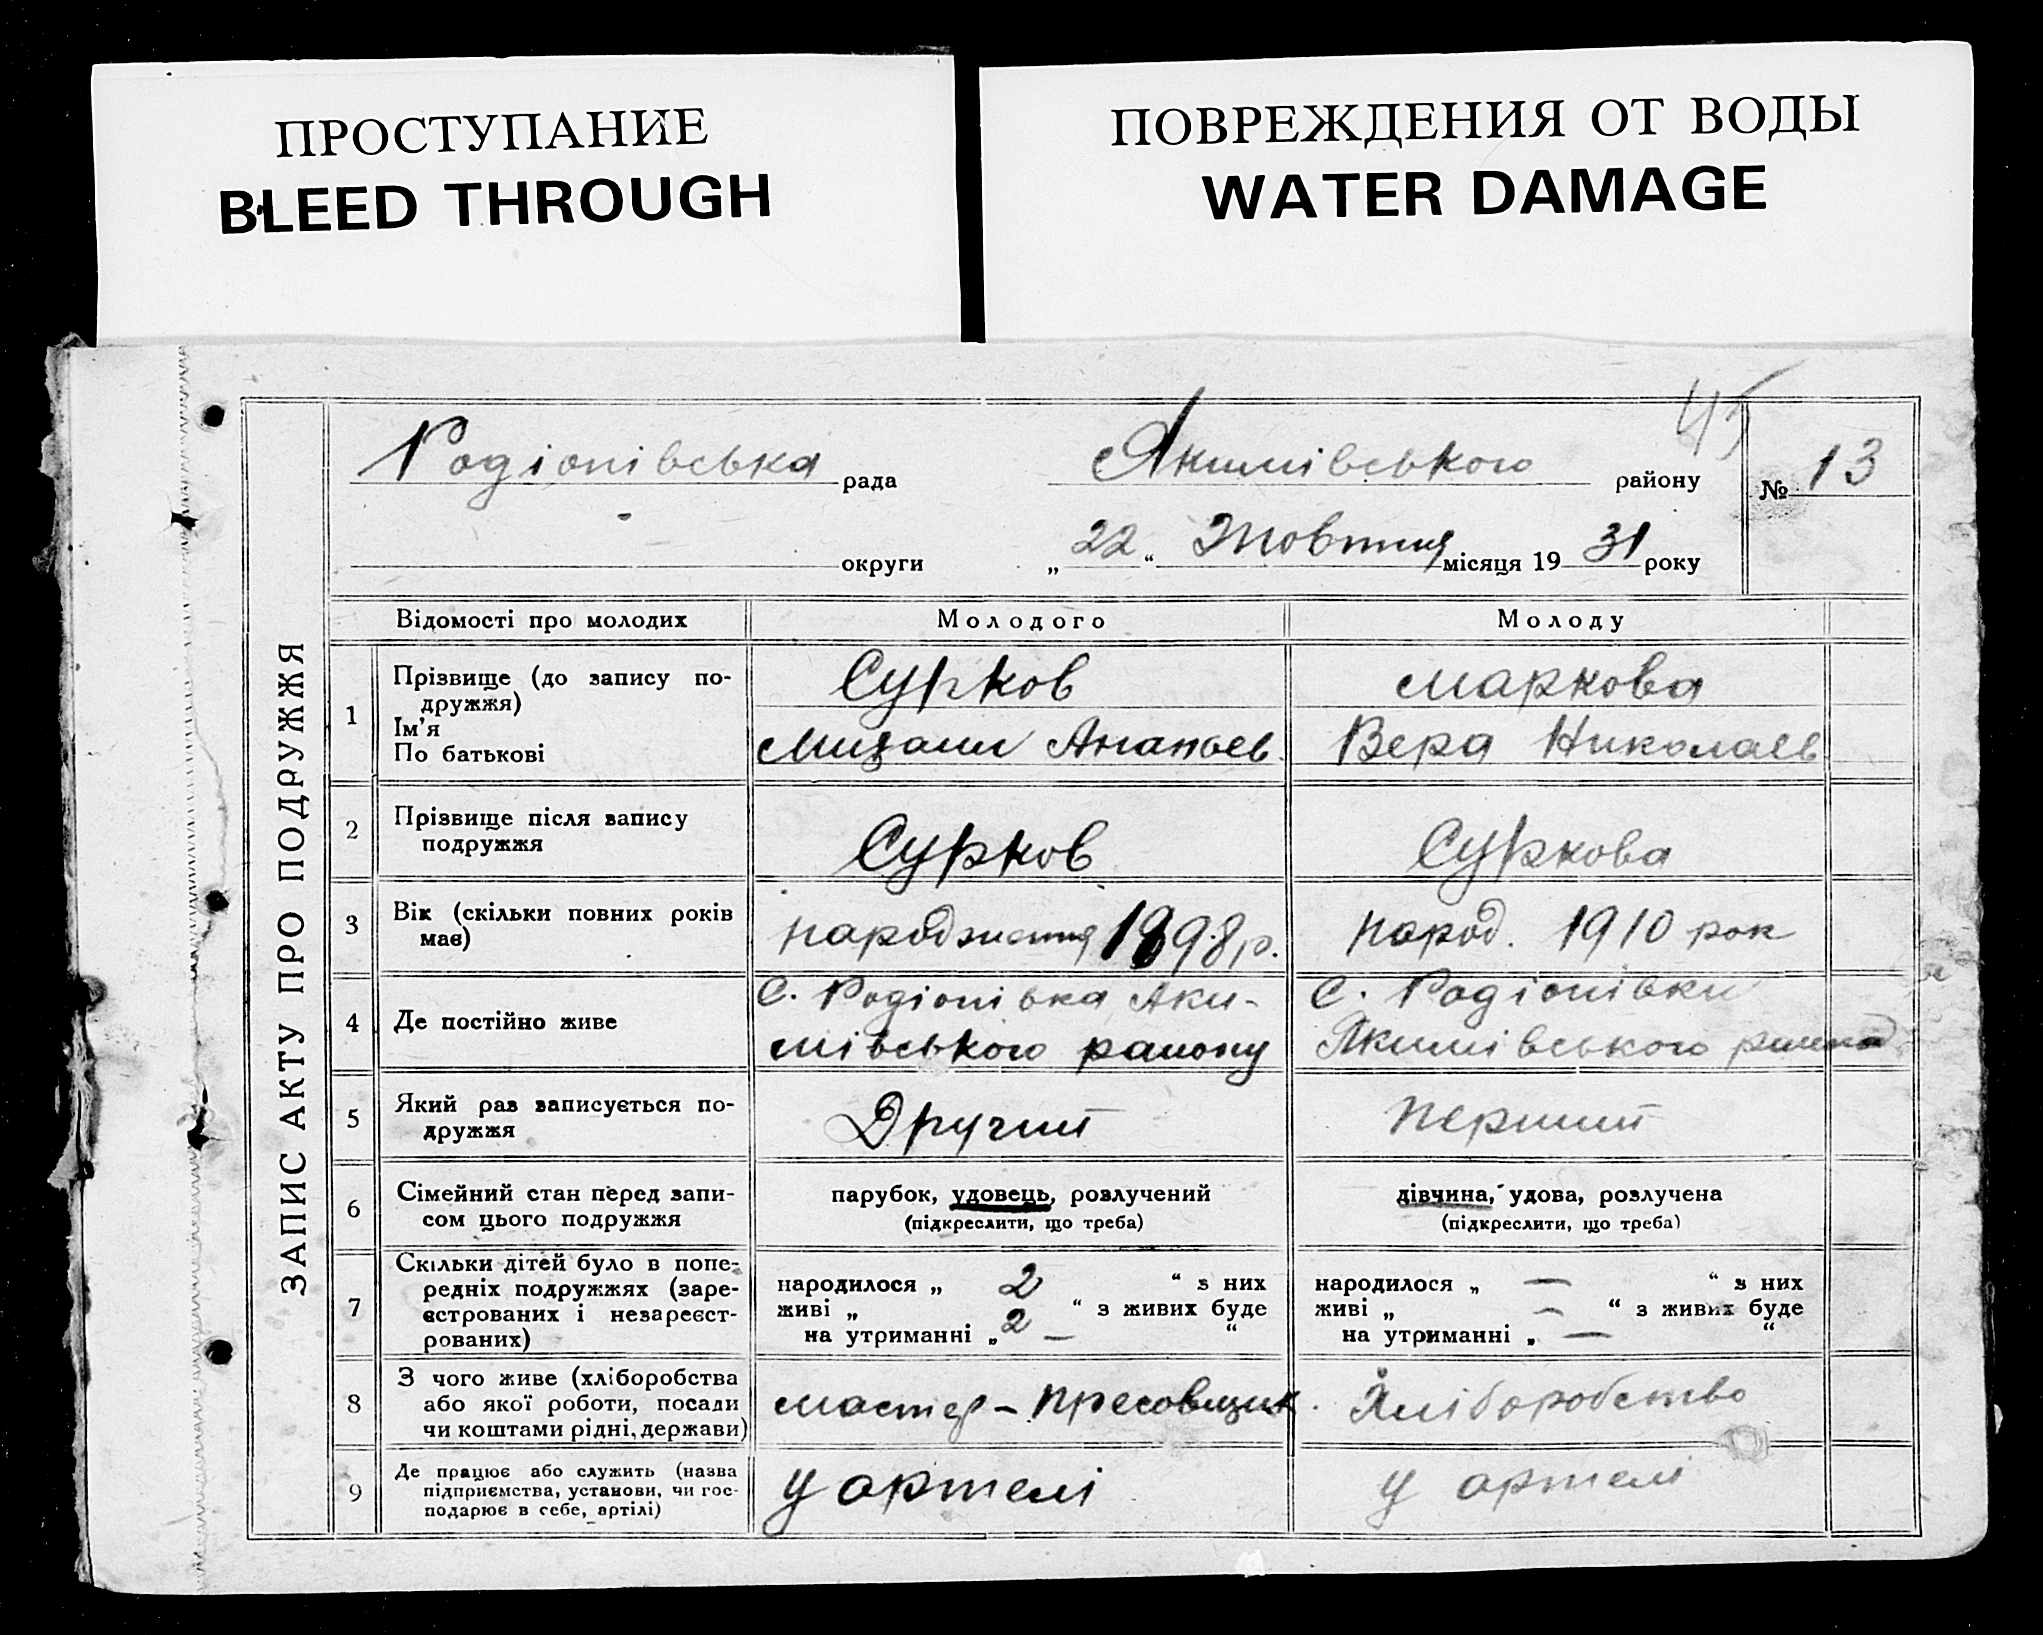 ПРОСТУПАНИЕ
BLEED THROUGH
ПОВРЕЖДЕНИЯ ОТ ВОДЫ
WATER DAMAGE
45
Родіонівська рада Якимівського району № 13
округи „ 22 “ Жовтня місяця 19 31 року
ЗАПИС АКТУ ПРО ПОДРУЖЖЯ
Відомості про молодих Молодого Молоду
1 Прізвище (до запису по-
дружжя) Сурков Маркова
Ім’я
По батькові Ананьев Вера Николаев
2 Прізвище після запису
подружжя Сурков Суркова
3 Вік (скільки повних років
має) народження 1898 р. народ. 1910 рок
4 Де постійно живе с. Родіонівка Аки- с. Родіонівки
мівського району Якимівського
5 Який раз записується по-
дружжя Другий Перший
6 Сімейний стан перед запи-
сом цього подружжя
парубок, удовець, розлучений
(підкреслити, що треба)
дівчина, удова, розлучена
(підкреслити, що треба)
7 Скільки дітей було в попе-
редніх подружжях (заре-
єстрованих і незареєст-
рованих)
народилося „ 2 “ з них
живі „ 2 “ з живих буде
на утриманні „ — “
народилося „ — “ з них
живі „ — “ з живих буде
на утриманні „ — “
8 З чого живе (хліборобства
або якої роботи, посади
чи коштами рідні, держави)
мастер – пресовщик. Хліборобство
9 Де працює або служить (назва
підприємства, установи, чи гос-
подарює в себе, артілі)
у артелі у артелі